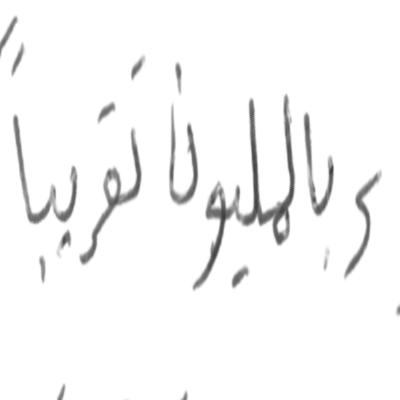 بالمليون تقريباً